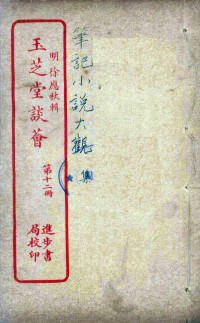 筆記小說大觀
集
明 徐應秋輯
玉芝堂談薈
第十二冊
進步書
局校印